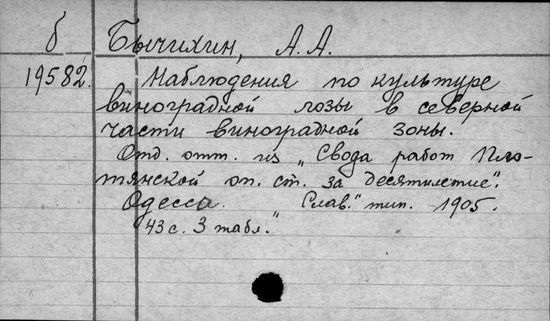 б Бычихин, А. А.
19582. Наблюдения по культуре
виноградной лозы в северной
части виноградной зоны.
Отд. отт. из „Свода работ Пло-
тянской оп. ст. за десятилетие".
Одесса. „Слав." тип. 1905.
43 с. 3 табл."